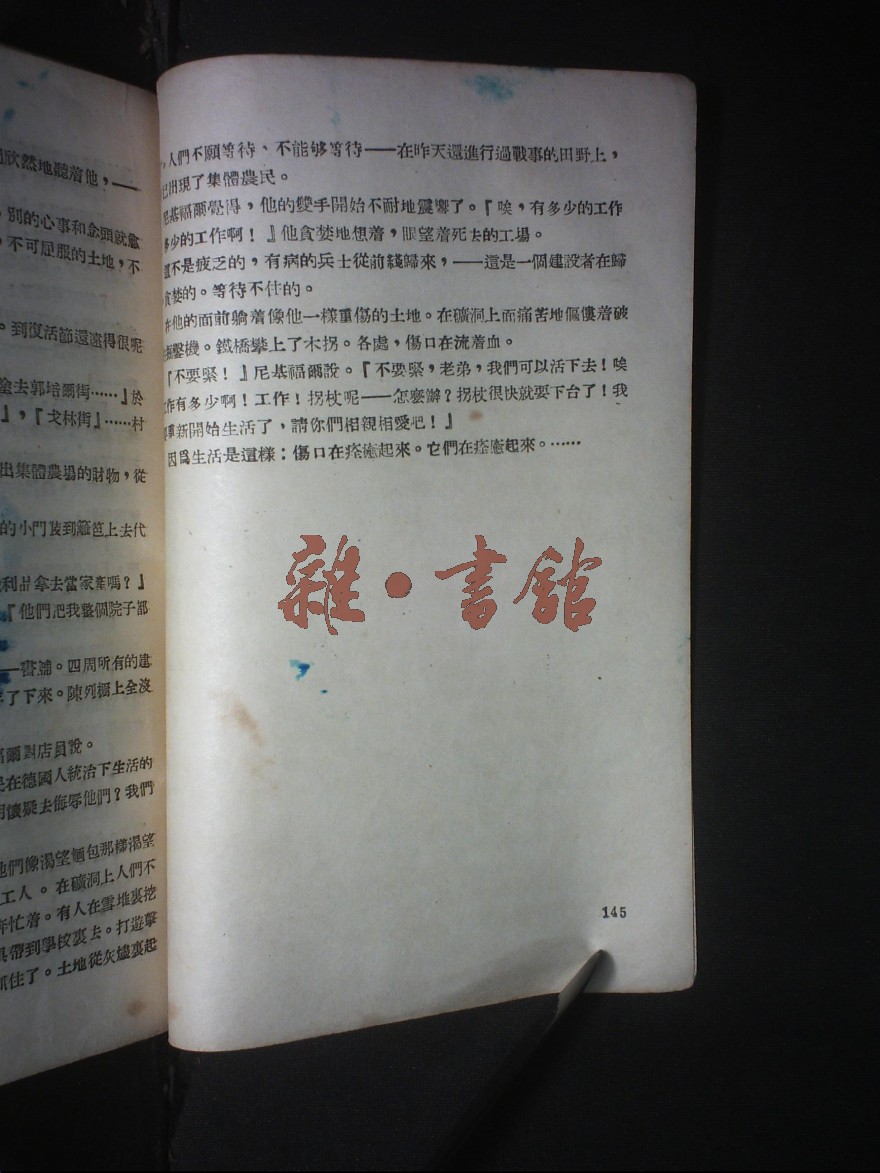 欣然地聽着他，——
別的心事和念頭就
，不可屈服的土地，不
』
。到復活節還遠得很呢
去郭培爾街……』於
』，『戈林街』……村
出集體農場的財物，從
的小門裝到籬笆上去代
利品拿去當家產嗎？』
『他們把我整個院子都
——書舖。四周所有的建
了下來。陳列櫥上全沒
爾對店員說。
在德國人統治下生活的
懷疑去侮辱他們？我們
他們像渴望麵包那樣渴望
工人。在礦洞上人們不
忙着。有人在雪堆裏挖
帶到學校裏去。打遊擊
抓住了。土地從灰燼裏起
，人們不願等待、不能够等待——在昨天還進行過戰事的田野上，
已出現了集體農民。
尼基福爾覺得，他的雙手開始不耐地震響了。『唉，有多少的工作
多少的工作啊！』他貪婪地想着，眼望着死去的工場。
還不是疲乏的，有病的兵士從前綫歸來，——這是一個建設者在歸
貪婪的。等待不住的。
在他的面前躺着像他一樣重傷的土地。在礦洞上面痛苦地傴僂着破
掘鑿機。鐵橋攀上了木拐。各處，傷口在流着血。
『不要緊！』尼基福爾說。『不要緊，老弟，我們可以活下去！唉
工作有多少啊！工作！拐杖呢——怎麼辦？拐杖很快就要下台了！我
重新開始生活了，請你們相親相愛吧！』
因爲生活是這樣：傷口在痊癒起來。它們在痊癒起來。……
雜・書館
145